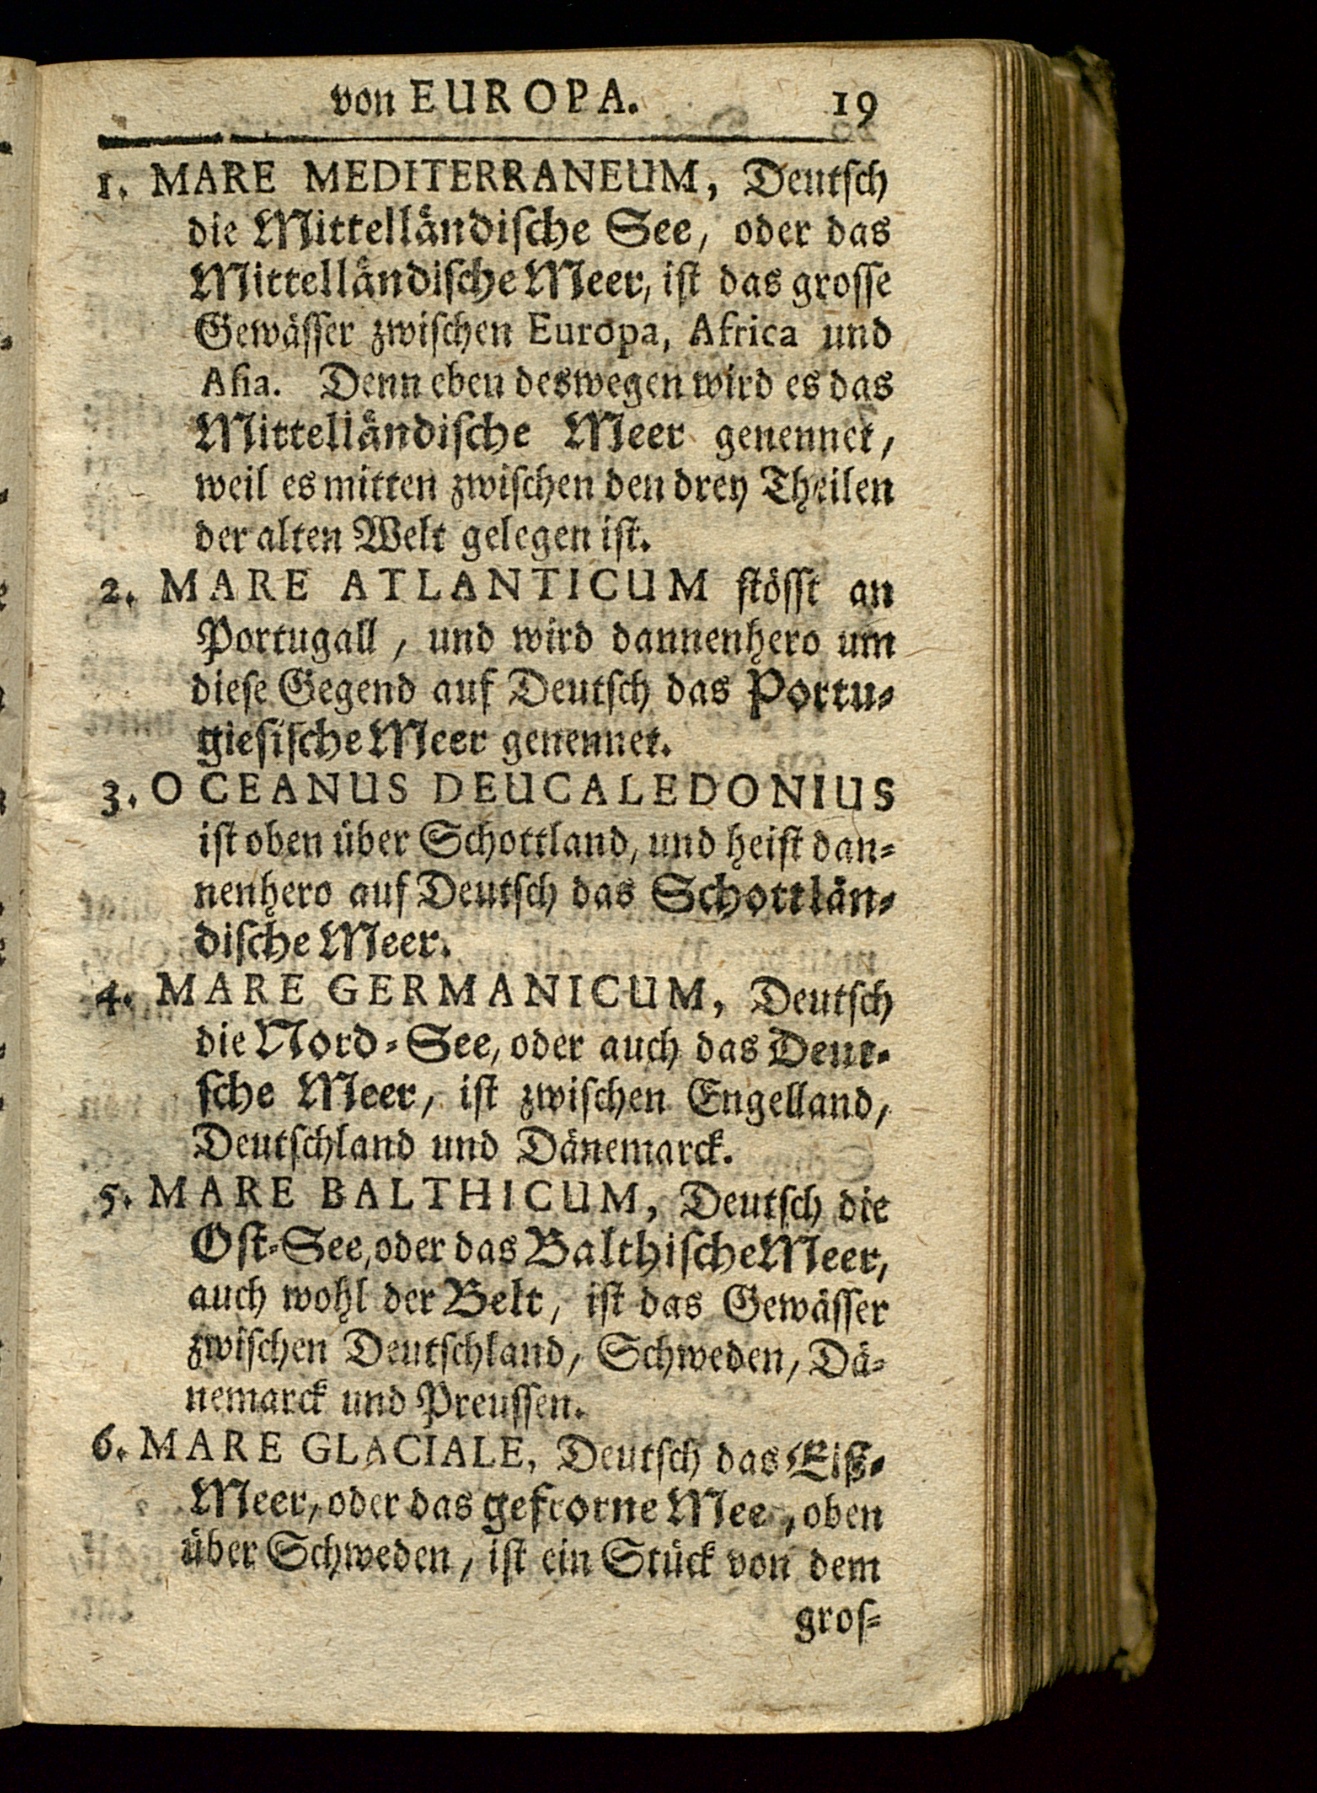 von EUROPA. 19
1. MARE MEDITERRANEUM, Deutſch
die Mittelländiſche See, oder das
Mittelländiſche Meer, iſt das groſſe
Gewäſſer zwiſchen Europa, Africa und
Aſia. Denn eben deswegen wird es das
Mittelländiſche Meer genennet,
weil es mitten zwiſchen den drey Theilen
der alten Welt gelegen iſt.
2. MARE ATLANTICUM ſtöſſt an
Portugall, und wird dannenhero um
dieſe Gegend auf Deutſch das Portu-
gieſiſche Meer genennet.
3. OCEANUS DEUCALEDONIUS
iſt oben über Schottland, und heiſt dan-
nenhero auf Deutſch das Schottlän-
diſche Meer.
4. MARE GERMANICUM, Deutſch
die Nord-See, oder auch das Deut-
ſche Meer, iſt zwiſchen Engelland,
Deutſchland und Dänemarck.
5. MARE BALTHICUM, Deutſch die
Oſt-See, oder das Balthiſche Meer,
auch wohl der Belt, iſt das Gewäſſer
zwiſchen Deutſchland, Schweden, Dä-
nemarck und Preuſſen.
6. MARE GLACIALE, Deutſch das Eiß-
Meer, oder das gefrorne Mee, oben
über Schweden, iſt ein Stück von dem
groſ-